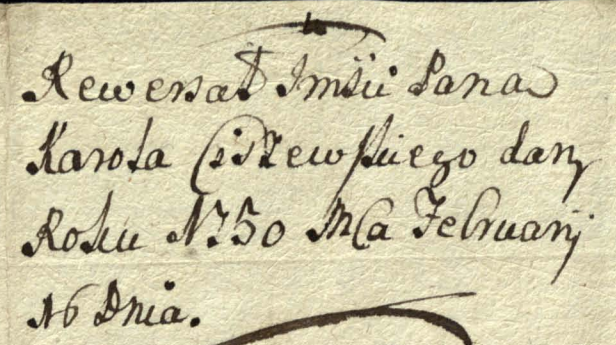 4
Rewersał Jmści Pana
Karola Ciszewskiego dany
Roku 1750 Mca Februarij
16 Dnia.